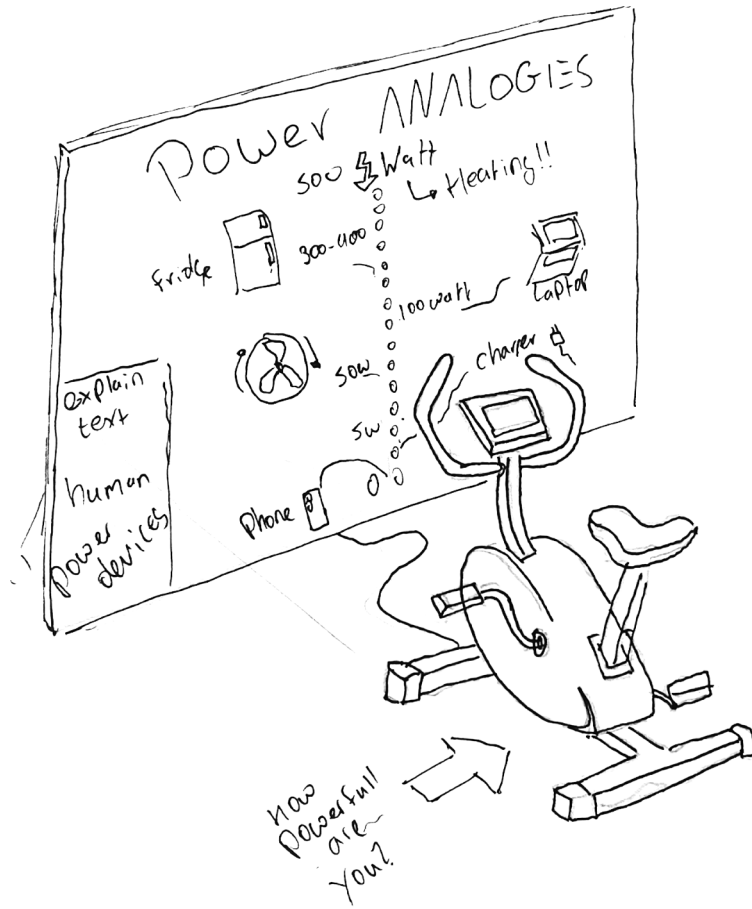 Power ANALOGIES
500 Watt
↳ Heating!!
fridge
300-400
100 watt
Laptop
50w
charger
5w
0
Phone
explain
text
human
power
devices
How
powerfull
are
you?